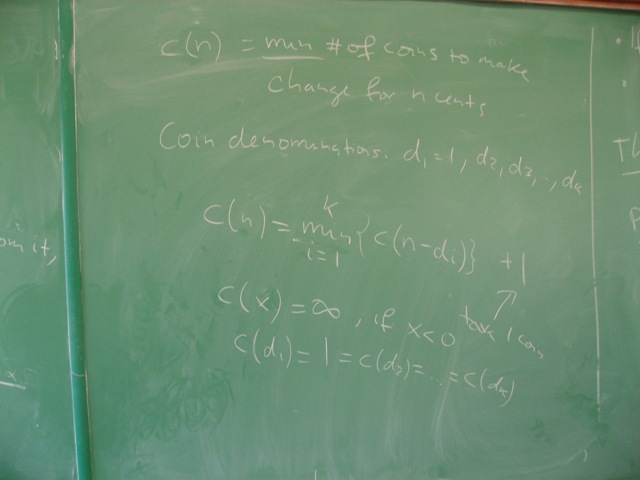 c(n) = min # of coins to make
change for n cents
Coin denominations. d₁=1, d₂, d₃, .., dₖ
C(n) = min{c(n-dᵢ)} +1
K
i=1
C(x) = ∞, if x<0
take 1 coin
C(d₁) = 1 = c(d₂) = ... = c(dₖ)
om it,
Th